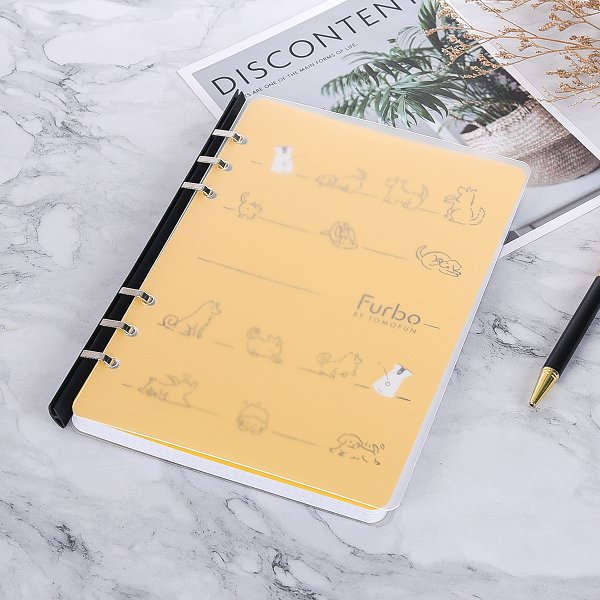 DISCONTENT
S ARE ONE OF THE MAIN FORMS OF LIFE
Furbo
BY TOMOFUN